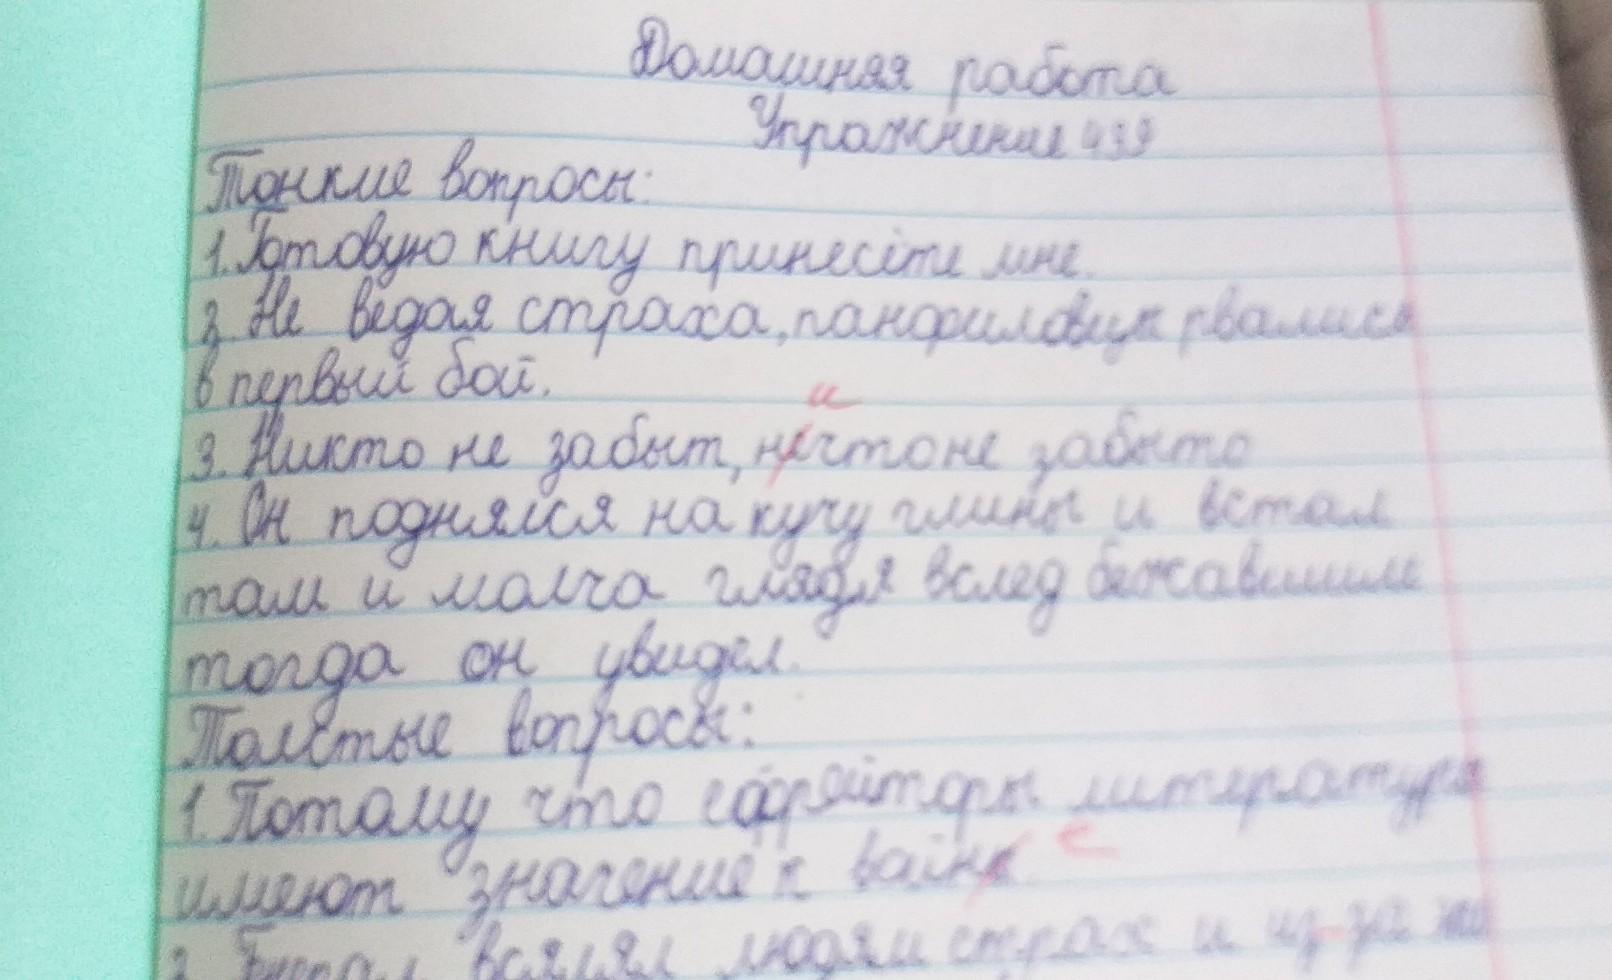 Домашняя работа
Упражнение 439
Тонкие вопросы:
1. Готовую книгу принесіте мне.
2. Не ведая страха, панфиловцы рвались
в первый бой.
и
3. Никто не забыт, нечто не забыто
4. Он поднялся на кучу глины и встал
там и молча глядя вслед бежавшим
тогда он увидел.
Толстые вопросы:
1. Потому что литература
имеют значение к войны е
2. вселял людям страх и из-за